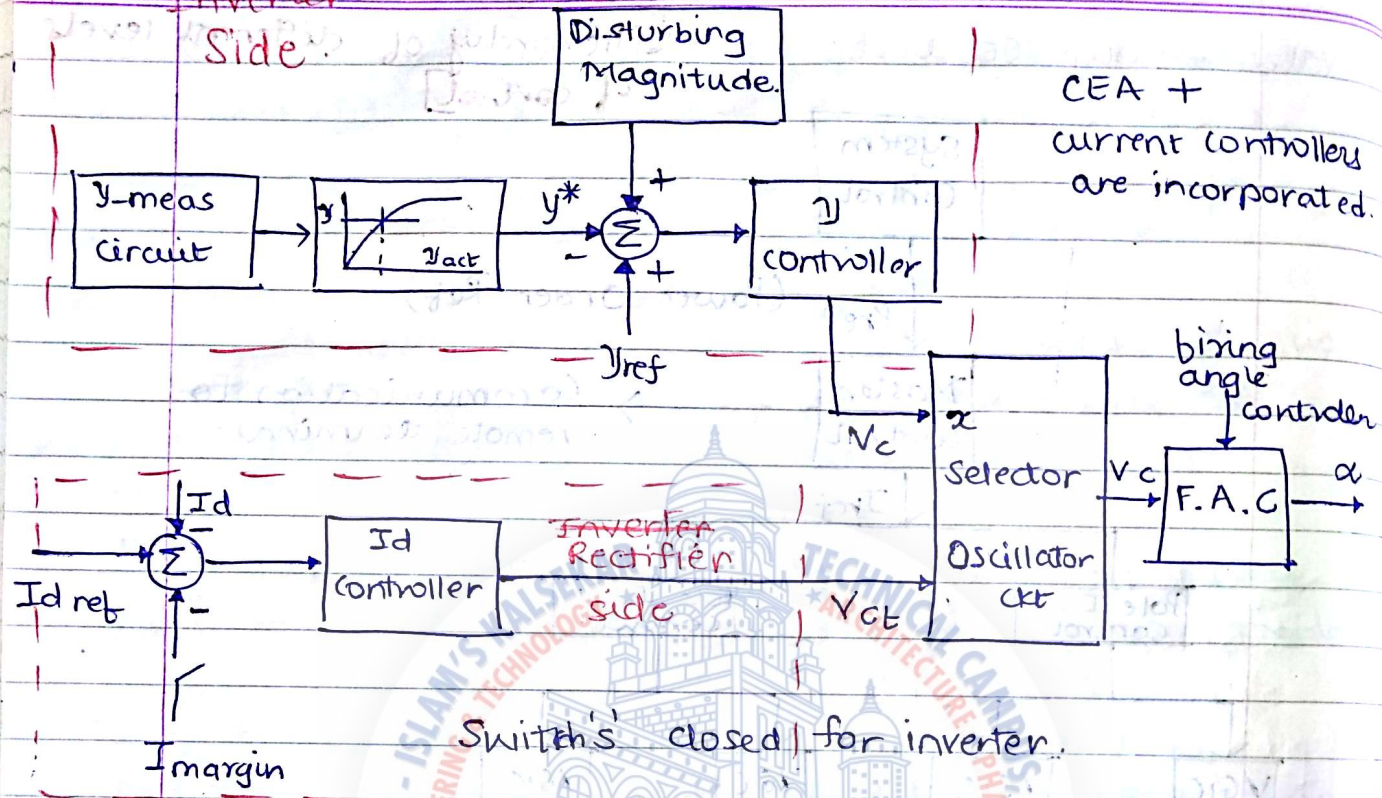 Inverter
Side.
Disturbing
Magnitude.
CEA +
current controllers
are incorporated.
γ-meas
circuit
γ
γact
γ*
+
-
Σ
+
γref
γ
controller
Vc
x
Selector
Oscillator
Ckt
Vc
biring
angle
controler
F.A.C
α
Id
-
Σ
Id ref
-
Imargin
Id
controller
Inverter
Rectifier
side
VCt
Switch's' closed for inverter.
ISLAM'S KALSEKAR TECHNICAL CAMPUS
TECHNOLOGY ★ ARCHITECTURE